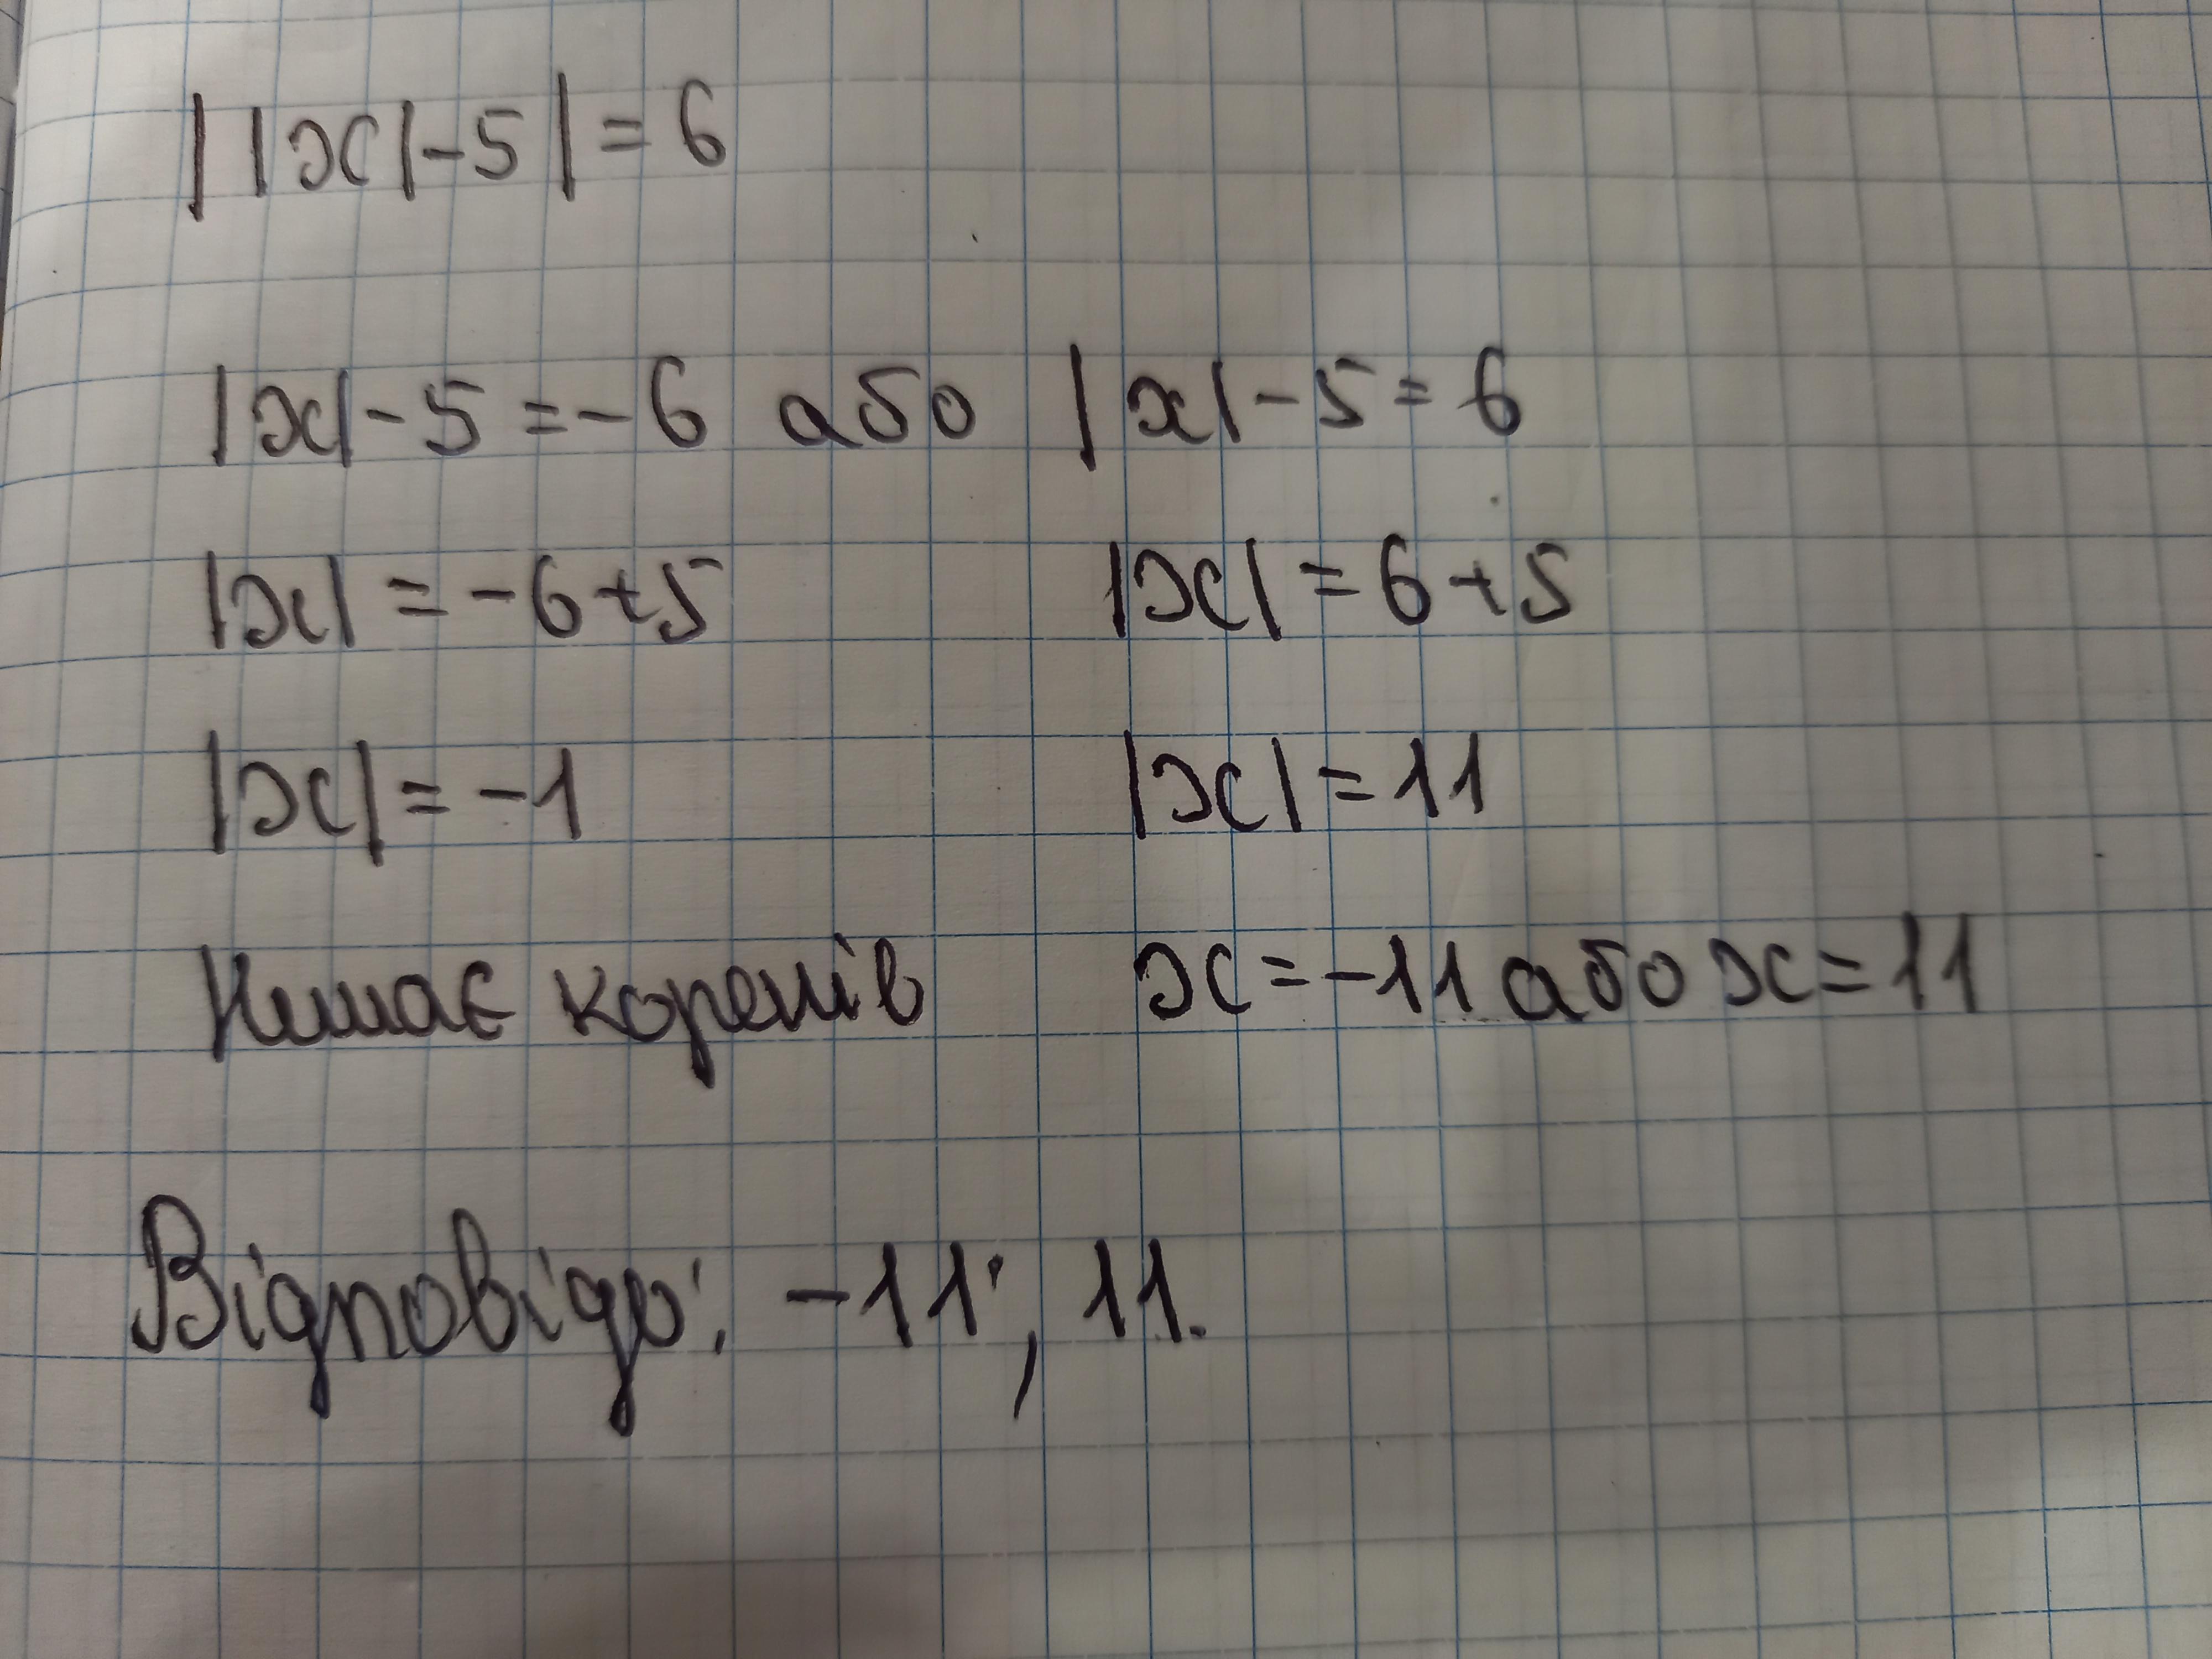 ||x|-5|=6
|x|-5=-6 або |x|-5=6
|x|=-6+5 |x|=6+5
|x|=-1 |x|=11
Немає коренів x=-11 або x=11
Відповідь: -11; 11.